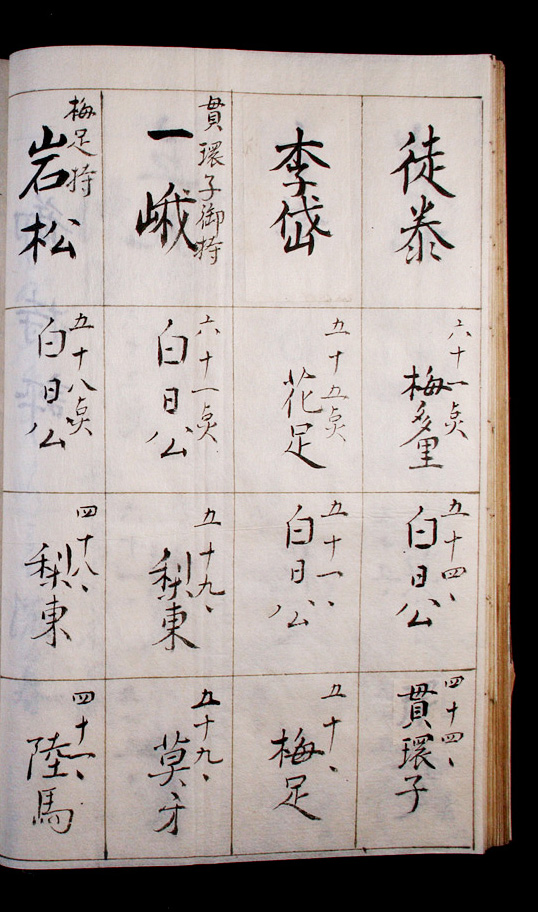 徒泰
六十一点
梅多里
五十四、
白日公
四十四、
貫環子
李岱
五十五点
花足
五十一、
白日公
五十、
梅足
貫環子御持
一峨
六十一点
白日公
五十九、
梨東
五十九、
莫牙
梅足持
岩松
五十八点
白日公
四十八、
梨東
四十一、
陸馬